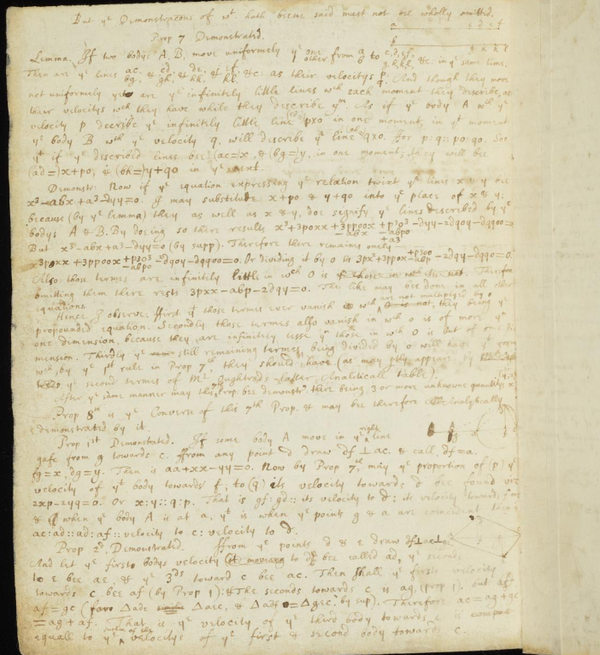 But yᵉ Demonstracons of wᵗ hath beene said must not bee wholly omitted.
Prop 7 Demonstrated.
Lemma. If two bodys A, B, move uniformely yᵉ one other from a g to c,d,e,f, h,k,l, &c in yᵉ same time.
Then are yᵉ lines ac bg, & cd gh, & de hk, & ef kl, &c as their velocitys p q. And though they move
not uniformely yet are yᵉ infinitely little lines wᶜʰ each moment they describe, as
their velocitys wᶜʰ they have while they describe yᵐ. As if yᵉ body A wᵗʰ yᵉ
velocity p describe yᵉ infinitely little line (cd=) p×o in one moment, in yᵗ moment
yᵉ body B wᵗʰ yᵉ velocity q, will describe yᵉ line (gh=) q×o. For p:q::po:qo. Soe
yᵗ if yᵉ described lines bee (ac=)x, & (bg=)y, in one moment, they will bee
(ad=)x+po, & (bh=)y+qo in yᵉ next.
Demonstr: Now if yᵉ equation expressing yᵉ relation twixt yᵉ lines x & y bee
x³-abx+a³-dyy=0. I may substitute x+po & y+qo into yᵉ place of x & y,
because (by yᵉ lemma) they as well as x & y, doe signify yᵉ lines described by yᵉ
bodys A & B. By doeing so there results x³+3poxx+3ppoox+p³o³-dyy-2dqoy-dqqoo=0
-abx -abpo
+a³
But x³-abx+a³-dyy=0 (by supp). Therefore there remaines onely
3poxx+3ppoox+p³o³-2dqoy-dqqoo=0. Or dividing it by o tis 3pxx+3ppox+ppo³-2dqy-dqqo=0.
-abpo -abp
Also those termes are infinitely little in wᶜʰ o is. Therefore
omitting them there rests 3pxx-abp-2dqy=0. The like may bee done in all other
equations.
Hence I observe. First yᵗ those termes ever vanish wᶜʰ are not multiplyed by o, they being yᵉ
propounded equation. Secondly those termes also vanish in wᶜʰ o is of more yⁿ
one dimension, because they are infinitely lesse yⁿ those in wᶜʰ o is but of one di-
mension. Thirdly yᵉ still remaining termes, being divided by o will have yᵗ forme
wᶜʰ, by yᵉ 1ˢᵗ rule in Prop 7ᵗʰ, they should have (as may partly appeare by
yᵉ second termes of Mʳ Oughtreds latter Analiticall table).
After yᵉ same manner may this Prop bee demonstrᵈ there being 3 or more unknowne quantitys x,
Prop 8ᵗʰ is yᵉ Converse of this 7ᵗʰ Prop. & may bee therefore Analytically
demonstrated by it.
Prop 1ˢᵗ Demonstrated. If some body A move in yᵉ right line
gafc from g towards c. From any point d draw df⊥ac. & call, df=a.
fg=x, dg=y. Then is aa+xx-yy=0. Now by Prop 7ᵗʰ, may yᵉ proportion of (p) yᵉ
velocity of yᵗ body towards f; to (q) its velocity towards d bee found viz:
2xp-2yq=0. Or x:y::q:p. That is gf:gd:: its velocity to d: its velocity towards f
& when yᵉ body A is at a, yᵗ is when yᵉ points g & a are coincident then
ac:ad::ad:af::velocity to c: velocity to d.
Prop 2ᵈ. Demonstrated. From yᵉ points d & e draw df⊥ac⊥
And let yᵉ first bodys velocity to d bee called ad, yᵉ seconds
to e bee ae, & yᵉ 3ᵈˢ toward c bee ac. Then shall yᵉ firsts velocity
towards c bee af (by Prop 1): & The seconds towards c is ag, (prop 1). but af=
af=gc (for △adc △aec, & △adf=△gec, by sup). Therefore ac=ag+gc
=ag+af. That is yᵉ velocity of yᵉ third body towards c is
equall to yᵉ summ of the velocitys of yᵉ first & second body towards c.